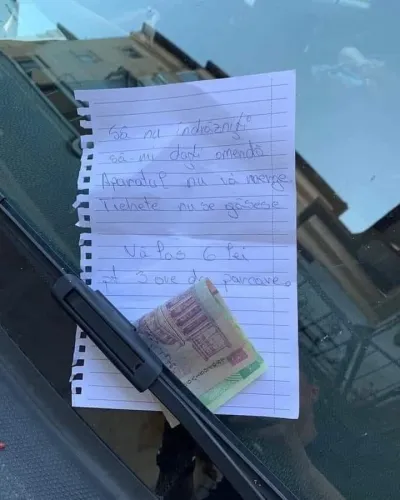 Să nu îndrăzniți
să-mi dați amendă
Aparatul nu vă merge
Tichete nu se găsesc
Vă las 6 lei
pt 3 ore de parcare.